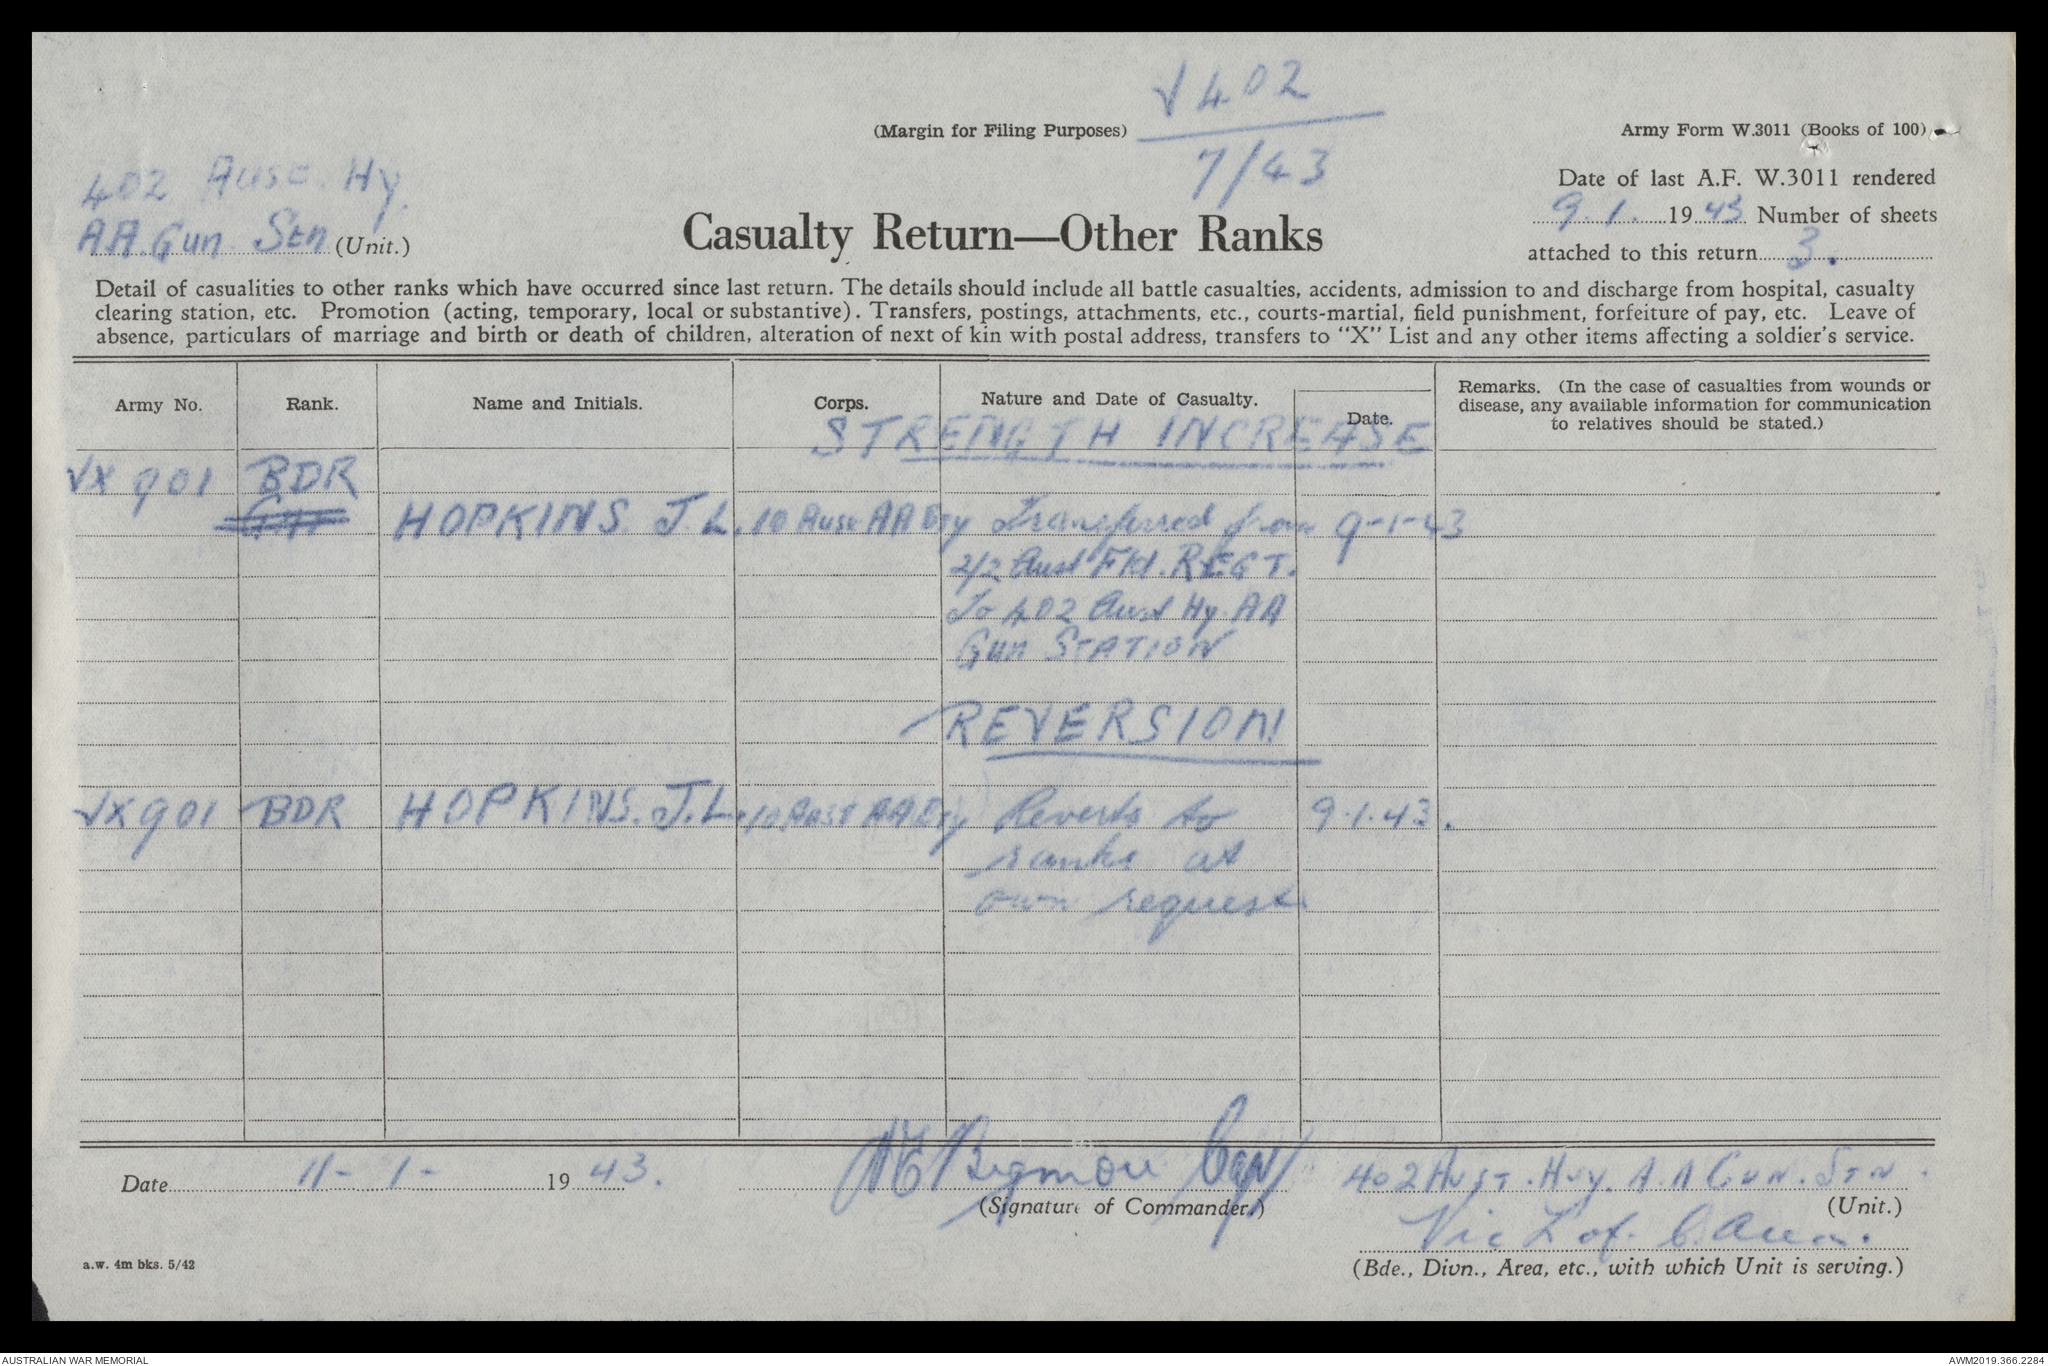 V402
(Margin for Filing Purposes)
7/43
Army Form W.3011 (Books of 100)
402 Aust. Hy.
AA. Gun Stn (Unit.)
Casualty Return—Other Ranks
Date of last A.F. W.3011 rendered
9.1. 1943 Number of sheets
attached to this return 3.
Detail of casualities to other ranks which have occurred since last return. The details should include all battle casualties, accidents, admission to and discharge from hospital, casualty
clearing station, etc. Promotion (acting, temporary, local or substantive). Transfers, postings, attachments, etc., courts-martial, field punishment, forfeiture of pay, etc. Leave of
absence, particulars of marriage and birth or death of children, alteration of next of kin with postal address, transfers to "X" List and any other items affecting a soldier's service.
Army No. Rank. Name and Initials. Corps. Nature and Date of Casualty. Date.
Remarks. (In the case of casualties from wounds or
disease, any available information for communication
to relatives should be stated.)
STRENGTH INCREASE
VX901 BDR
Gnr
HOPKINS. J.L. 10 Aust AA Bty Transferred from 9-1-43
2/2 Aust Fld. REGT.
To 402 Aust Hy AA
Gun STATION
REVERSION
VX901 BDR HOPKINS. J.L. 10 Aust AA Bty Reverts to 9.1.43.
ranks at
own request.
Date 11-1-1943.
Capt
(Signature of Commander.)
402 AUST. HVY. A.A GUN. STN.
(Unit.)
Vic L of C. Area.
(Bde., Divn., Area, etc., with which Unit is serving.)
a.w. 4m bks. 5/42
AUSTRALIAN WAR MEMORIAL
AWM2019.366.2284